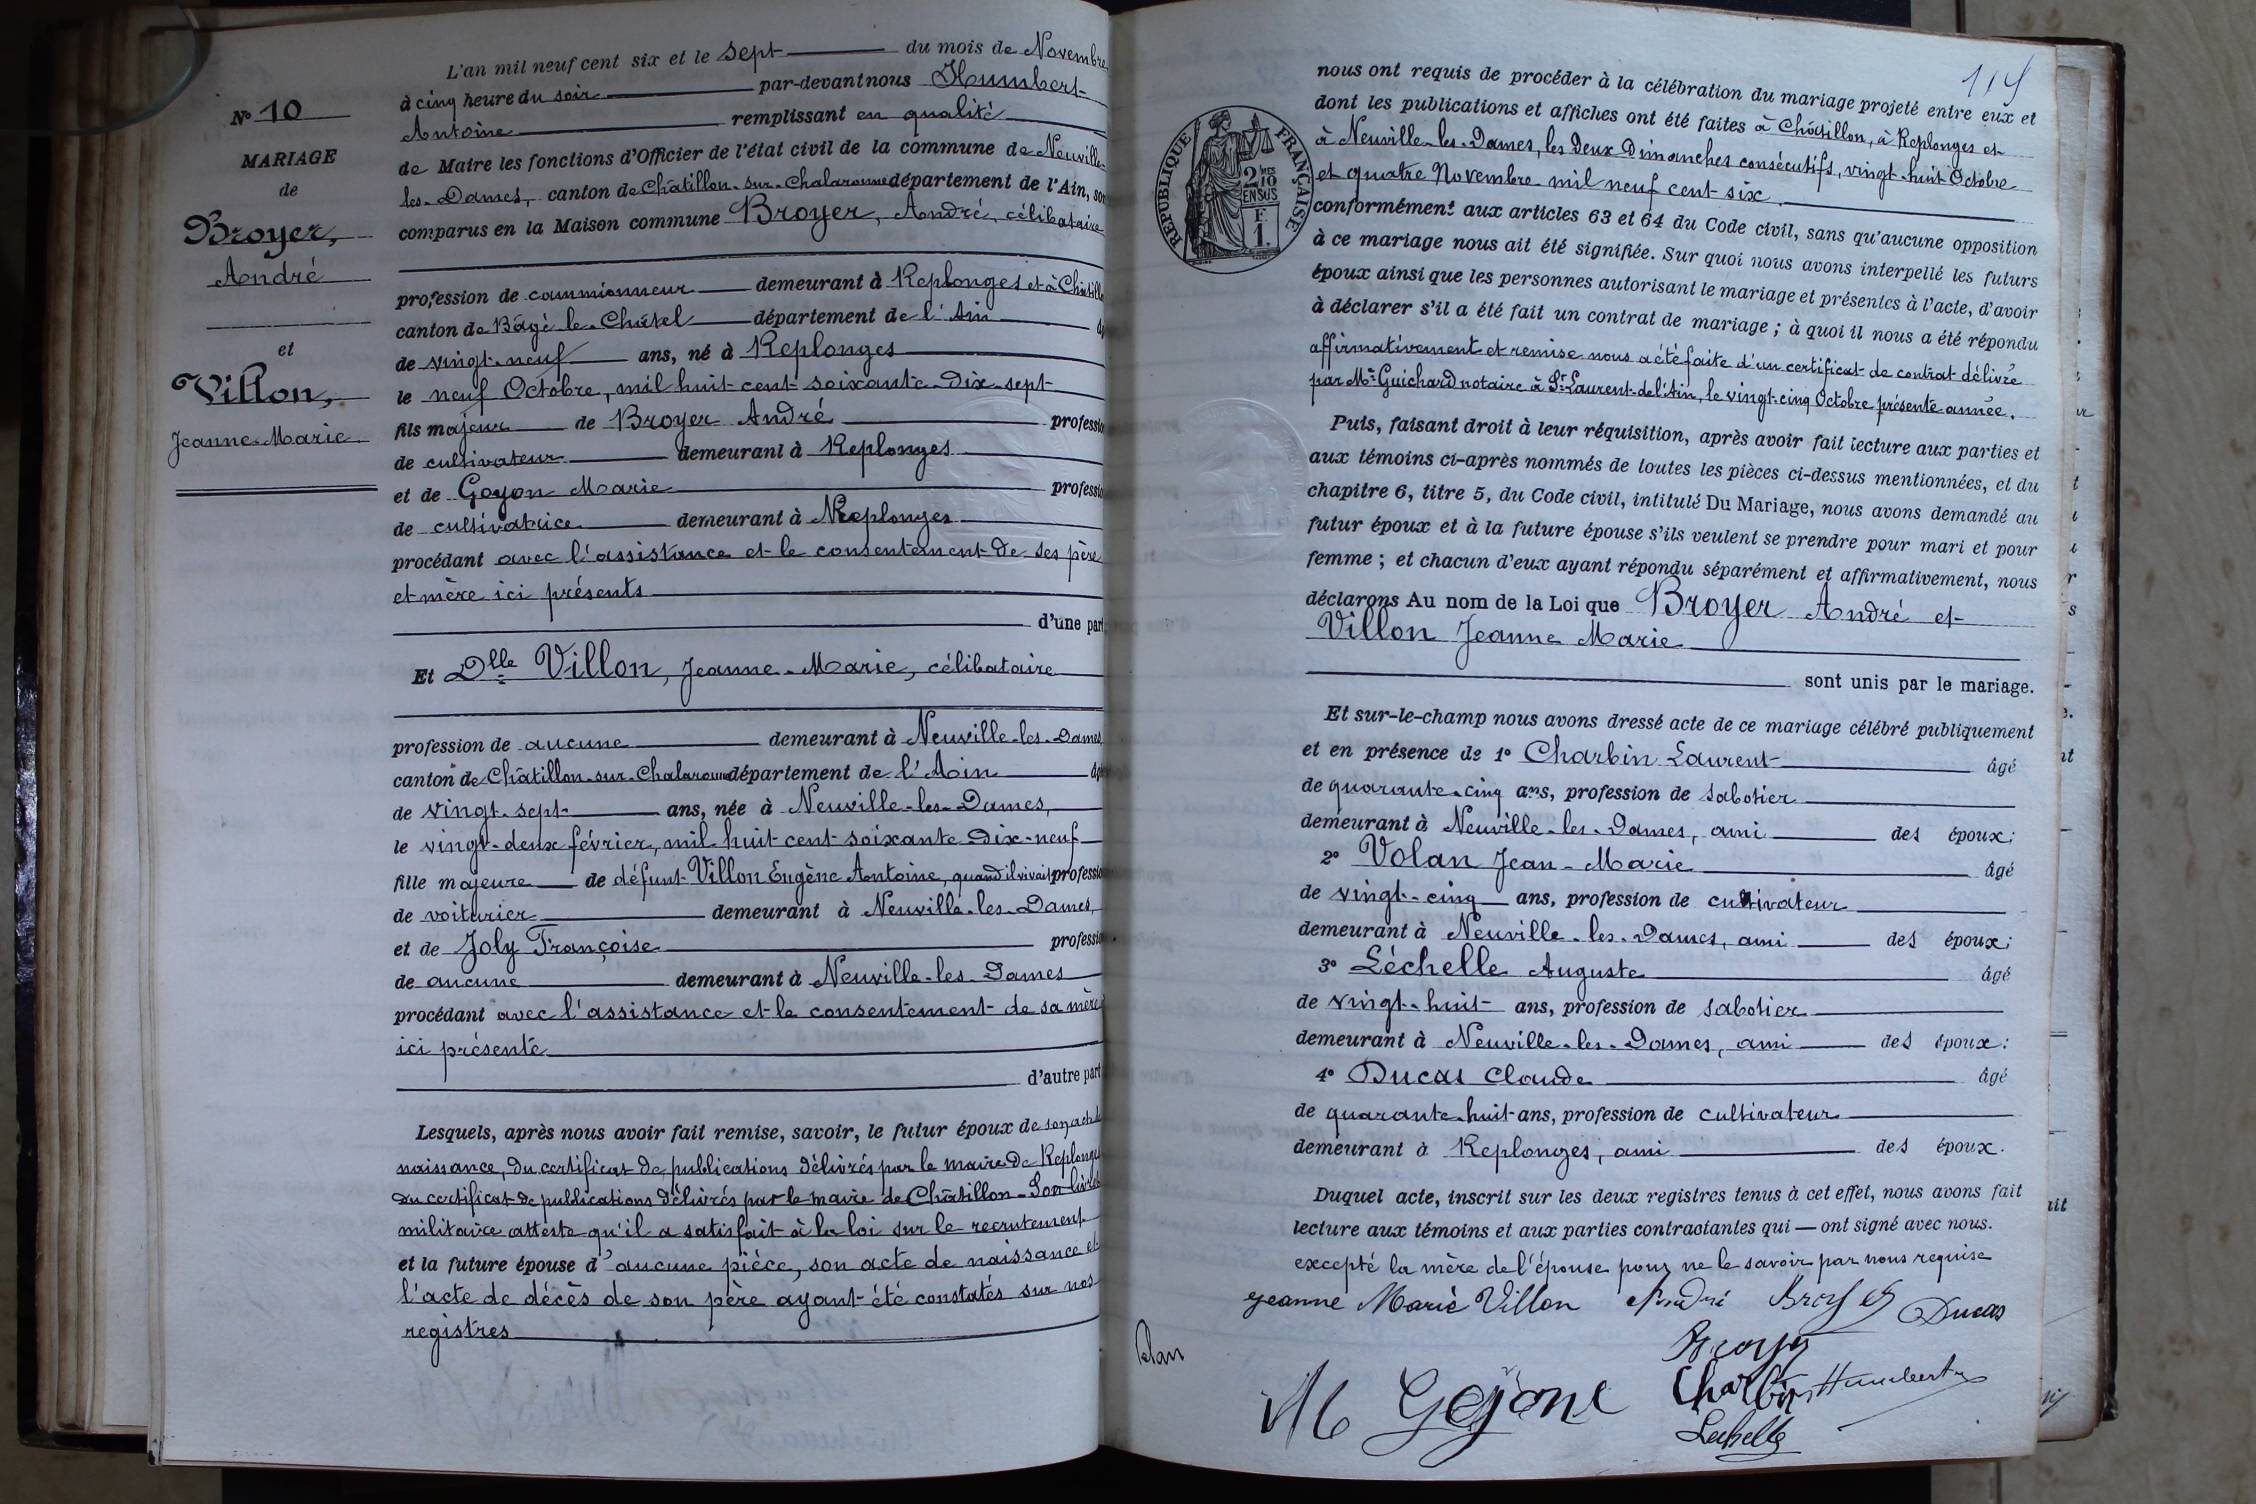 L'an mil neuf cent six et le sept du mois de Novembre
à cinq heure du soir par-devant nous Humbert
Antoine remplissant en qualité
de Maire les fonctions d'Officier de l'état civil de la commune de Neuville-
les-Dames, canton de Châtillon-sur-Chalaronne département de l'Ain, son
comparus en la Maison commune Broyer, André, célibataire
profession de commionneur demeurant à Replonges et à Châtillo
canton de Bâgé-le-Châtel département de l'Ain âg
de vingt-neuf ans, né à Replonges
le neuf Octobre, mil huit cent soixante-dix-sept
fils majeur de Broyer André professio
de cultivateur demeurant à Replonges
et de Goyon Marie professio
de cultivatrice demeurant à Replonges
procédant avec l'assistance et le consentement de ses père
et mère ici présents
d'une part
Et Dlle Villon, Jeanne-Marie, célibataire
profession de aucune demeurant à Neuville-les-Dames
canton de Châtillon-sur-Chalaronne département de l'Ain âg
de vingt-sept ans, née à Neuville-les-Dames,
le vingt-deux février, mil huit cent soixante-dix-neuf
fille majeure de défunt Villon Eugène Antoine, quand il vivait professio
de voiturier demeurant à Neuville-les-Dames,
et de Joly Françoise professio
de aucune demeurant à Neuville-les-Dames
procédant avec l'assistance et le consentement de sa mère
ici présente
d'autre part
Lesquels, après nous avoir fait remise, savoir, le futur époux de son acte de
naissance, du certificat de publications délivrés par le maire de Replonges
du certificat de publications délivrés par le maire de Châtillon - Son livret
militaire atteste qu'il a satisfait à la loi sur le recrutement
et la future épouse d'aucune pièce, son acte de naissance et
l'acte de décès de son père ayant été constatés sur nos
registres
No 10
MARIAGE
de
Broyer,
André
et
Villon,
Jeanne-Marie
nous ont requis de procéder à la célébration du mariage projeté entre eux et
dont les publications et affiches ont été faites à Châtillon, à Replonges et
à Neuville-les-Dames, les deux Dimanches consécutifs, vingt-huit Octobre
et quatre Novembre mil neuf cent six.
conformément aux articles 63 et 64 du Code civil, sans qu'aucune opposition
à ce mariage nous ait été signifiée. Sur quoi nous avons interpellé les futurs
époux ainsi que les personnes autorisant le mariage et présentes à l'acte, d'avoir
à déclarer s'il a été fait un contrat de mariage ; à quoi il nous a été répondu
affirmativement et remise nous a été faite d'un certificat de contrat délivré
par Me Guichard notaire à St-Laurent-de-l'Ain, le vingt-cinq Octobre présente année.
Puis, faisant droit à leur réquisition, après avoir fait lecture aux parties et
aux témoins ci-après nommés de toutes les pièces ci-dessus mentionnées, et du
chapitre 6, titre 5, du Code civil, intitulé Du Mariage, nous avons demandé au
futur époux et à la future épouse s'ils veulent se prendre pour mari et pour
femme ; et chacun d'eux ayant répondu séparément et affirmativement, nous
déclarons Au nom de la Loi que Broyer André et
Villon Jeanne Marie
sont unis par le mariage.
Et sur-le-champ nous avons dressé acte de ce mariage célébré publiquement
et en présence de 1o Charbin Laurent âgé
de quarante-cinq ans, profession de sabotier
demeurant à Neuville-les-Dames, ami des époux;
2o Volan Jean-Marie âgé
de vingt-cinq ans, profession de cultivateur
demeurant à Neuville-les-Dames, ami des époux;
3o Léchelle Auguste âgé
de vingt-huit ans, profession de sabotier
demeurant à Neuville-les-Dames, ami des époux:
4o Ducas Claude âgé
de quarante-huit ans, profession de cultivateur
demeurant à Replonges, ami des époux.
Duquel acte, inscrit sur les deux registres tenus à cet effet, nous avons fait
lecture aux témoins et aux parties contractantes qui — ont signé avec nous.
excepté la mère de l'épouse pour ne le savoir par nous requise
Jeanne Marie Villon André Broyer Ducas
Broyer
Charbin Humbert
Lechelle
RÉPUBLIQUE FRANÇAISE
2/10
EN SUS
F.
1.